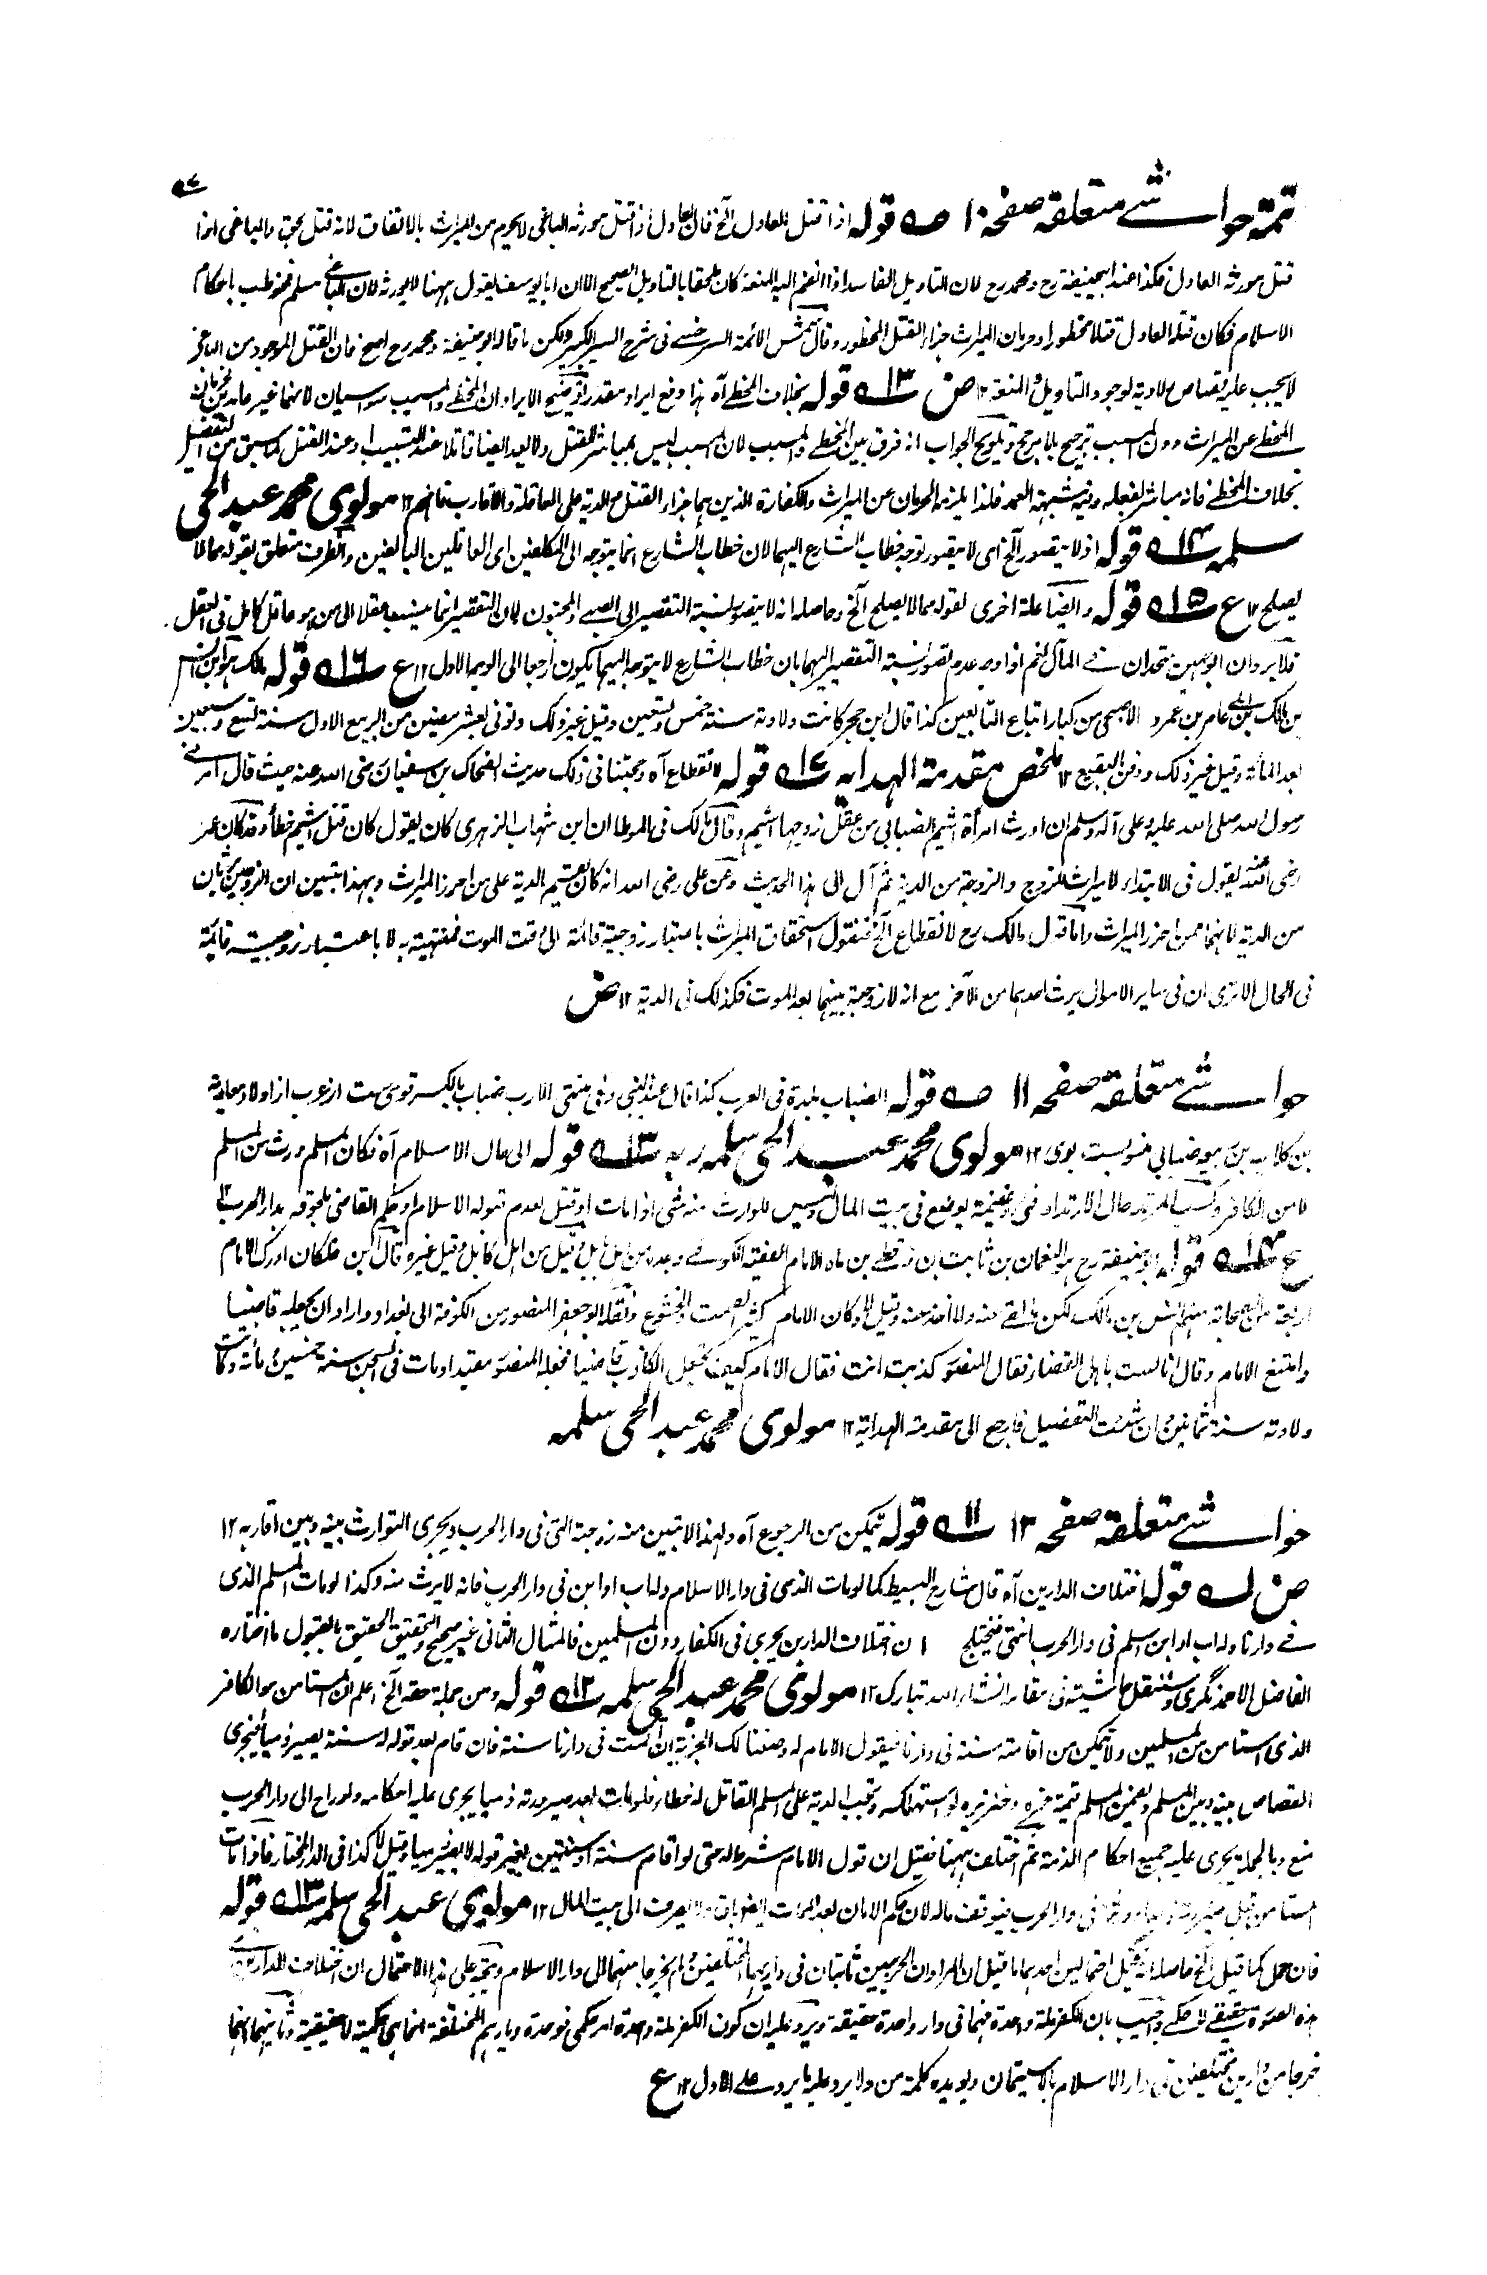 ٥٧
تتمة حواشي متعلقه صفحه ١٠ قوله اذا قتل العادل آلخ فان العادل اذا قتل مورثه الباغى لا يحرم من الميراث بالاتفاق لانه قتل بحق والباغى اذا
قتل مورثه العادل فكذا عند ابيحنيفة رح ومحمد رح لان التاويل الفاسد اذا انضم اليه المنعة كان ملحقا بالتاويل الصحيح الا ان ابا يوسف يقول ههنا لا يورثه لان الباغي مسلم مخوطب باحكام
الاسلام فكان قتله العادل قتلا محظورا وحرمان الميراث جزاء القتل المحظور وقال شمس الائمة السرخسي فى شرح السير الكبير ولكن ما قاله ابو حنيفة ومحمد رح اصح فان القتل الموجود من الباغى
لا يجب عليه قصاص ولا دية لوجود التاويل والمنعة ١٢ ض ١٣ قوله بخلاف المخطى آه هذا دفع ايراد مقدر توضيح الايراد ان المخطى والمسبب سواسيان لانهما غير عامدين
المخطى عن الميراث دون المسبب ترجيح بلا مرجح وتلويح الجواب انه فرق بين المخطى والمسبب لان المسبب ليس بمباشر للقتل ولا يعد ايضا قاتلا عند التسبيب
بخلاف المخطى فانه مباشر لفعله وفيه شبهة العمد فلذا يلزمه الحرمان عن الميراث والكفارة الذين هما جزاء القتل مع الدية على العاقلة والاقارب فافهم ١٢ مولوى محمد عبد الحى
سلمه ١٤ قوله اذ لا يتصور آلخ اى لا يتصور توجه خطاب الشارع اليهما لان خطاب الشارع انما يتوجه الى المكلفين اى العاقلين البالغين والظرف متعلق بقوله مما لا
يصلح ١٢ ع ١٥ قوله وايضا علة اخرى لقوله مما لا يصلح آلخ وحاصله انه لا يتصور نسبة التقصير الى الصبي والمجنون لان التقصير انما ينسب عقلا الى من هو عاقل كامل فى العقل
فلا يرد ان الوجهين متحدان في المآل نعم اذا وجه عدم تصور نسبة التقصير اليهما بان خطاب الشارع لا يتوجه اليهما يكون راجعا الى الوجه الاول ١٢ ع ١٦ قوله مالك هو ابن انس
بن مالك بن ابى عامر بن عمرو الاصبحى من كبار اتباع التابعين كذا قال ابن حجر كانت ولادته سنة خمس وتسعين وقيل غير ذلك وتوفى لعشر مضين من الربيع الاول سنة تسع وسبعين
بعد المأة وقيل غير ذلك ودفن البقيع ١٢ ملخص مقدمة الهدايه ١٧ قوله لانقطاع آه وحجتنا فى ذلك حديث الضحاك بن سفيان رضى الله عنه حيث قال امرني
رسول الله صلى الله عليه وعلى آله وسلم ان اورث امرأة اشيم الضبابى من عقل زوجها اشيم وقال مالك فى الموطا ان ابن شهاب الزهرى كان يقول كان قتل اشيم خطأ وقد كان عمر
رضى الله عنه يقول فى الابتداء لا ميراث للزوج والزوجة من الدية ثم آل الى هذا الحديث وعن على رضى الله انه كان يقسم الدية على من احرز الميراث وبهذا يتبين ان الزوجين يرثان
من الدية لانهما ممن احرز الميراث واما قول مالك رح لانقطاع آلخ فنقول استحقاق الميراث باعتبار زوجية قائمة الى وقت الموت منتهية به لا باعتبار زوجية قائمة
فى الحال الا ترى ان فى ساير الاموال يرث احدهما من الآخر مع انه لا زوجية بينهما بعد الموت فكذلك فى الدية ١٢ ض
حواشي متعلقه صفحه ١١ قوله الضباب بلدة فى العرب كذا قال عبد النبى وفى منتهى الارب ضباب بالكسر قومى ست از عرب از اولاد معاوية
بن كلاب بن ربيعه ضبابى منسوبست بوى ١٢ مولوى محمد عبد الحى سلمه ربه ١٣ قوله الى حال الاسلام آه فكان المسلم ورث من المسلم
لا من الكافر وكسب المرتد حال الارتداد فئ وغنيمة يوضع فى بيت المال وليس للوارث منه شئ اذا مات او قتل لعدم قبوله الاسلام او حكم القاضى بلحوقه بدار الحرب ١٢
ع ١٤ قوله ابو حنيفة رح هو النعمان بن ثابت بن زوطى بن ماه الامام الفقيه الكوفي وجده من اهل بابل وقيل من اهل كابل وقيل غيره قال ابن خلكان ادرك الامام
اربعة من الصحابة منهم انس بن مالك لكن ما لقي منه ولا اخذ عنه وقيل لا وكان الامام كثير الصمت والخشوع ونقله ابو جعفر المنصور من الكوفة الى بغداد واراد ان يجعله قاضيا
وامتنع الامام وقال انا لست باهل القضاء فقال المنصور كذبت انت فقال الامام كيف تجعل الكاذب قاضيا فجعله المنصور مقيدا ومات فى السجن سنة خمسين ومائة وكانت
ولادته سنة ثمانين وان شئت التفصيل فارجع الى مقدمة الهداية ١٢ مولوى محمد عبد الحى سلمه
حواشي متعلقه صفحه ١٢ ١١ قوله تمكن من الرجوع آه ولهذا لا تبين منه زوجته التى فى دار الحرب ويجرى التوارث بينه وبين اقاربه ١٢
ض قوله اختلاف الدارين آه قال شارح البسيط كما لو مات الذمى فى دار الاسلام وله اب او ابن فى دار الحرب فانه لا يرث منه وكذا لو مات المسلم الذى
في دارنا وله اب او ابن اسلم فى دار الحرب انتهى ان اختلاف الدارين يجرى فى الكفار دون المسلمين فالمثال الثانى غير صحيح والتحقيق الحقيق بالقبول ما اختاره
الفاضل الاحمد نگرى وسننقل حاشيته فى مقامه انشاء الله تبارك ١٢ مولوى محمد عبد الحى سلمه ١٢ قوله ومن جملة حقه آلخ اعلم ان المستامن هو الكافر
الذى استامن من المسلمين ولا يمكن من اقامته سنة فى دارنا فيقول الامام له وضعنا لك الجزية ان اقمت فى دارنا سنة فان قام بعد قوله له سنة يصير ذميا فيجرى
القصاص بينه وبين المسلم ويضمن المسلم قيمة خمره وخنزيره لو استهلكه وتجب الدية على المسلم القاتل له خطاء فلو مات بعد صيرورته ذميا يجرى عليه احكامه ولو راح الى دار الحرب
منع وبالجملة يجرى عليه جميع احكام الذمة ثم اختلف ههنا فقيل ان قول الامام شرط له حتى لو اقام سنة او سنتين بغير قوله لا يصير ذميا وقيل لا كذا فى الدر المختار فاذا مات
المستامن قبل فى دار الحرب فيوقف ماله لان حكم الامان بعد الموت ولا يصرف الى بيت المال ١٢ مولوى عبد الحى سلمه ١٣ قوله
فان حمل كما قيل آلخ حاصله انه يحتمل احتمالين احدهما ما قيل ان المراد ان الحربيين ثابتان فى داريهما المختلفين ولم يخرجا منهما الى دار الاسلام ويتجه على هذا الاحتمال ان اختلاف الدارين في
هذه الصورة حقيقي لا حكمي واجيب بان الكفر ملة واحدة فهما فى دار واحدة حقيقة ويرد عليه ان كون الكفر ملة واحدة امر حكمى فوحدة ديارهم المختلفة انما هى حكمية لا حقيقية وثانيهما انهما
خرجا من دارين مختلفين الى دار الاسلام بالاستيمان ويويده كلمة من ولا يرد عليه ما يرد على الاول ١٢ ع